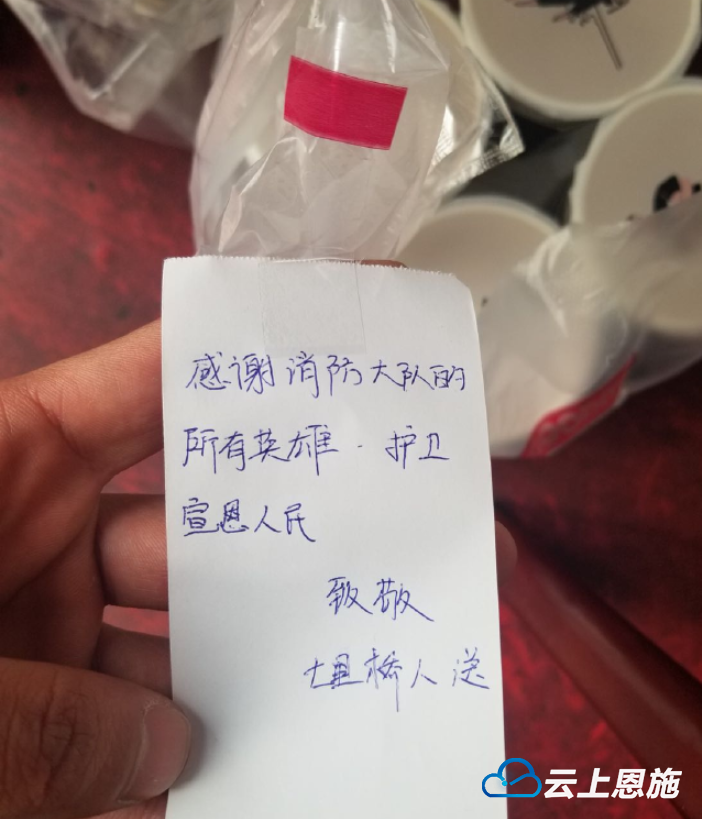 感谢消防大队的
所有英雄. 护卫
宣恩人民
致敬
桥人 送
云上恩施